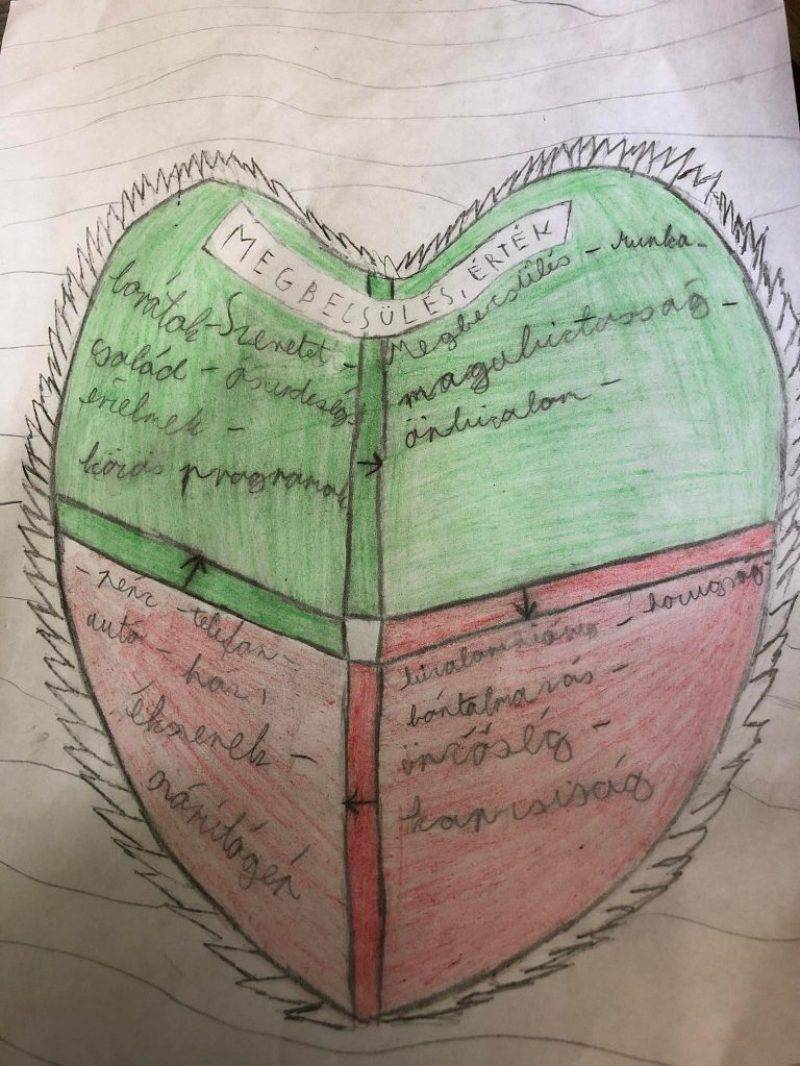 MEGBECSÜLÉS, ÉRTÉK
barátok - Szeretet -
család - őszinteség
érzelmek -
közös programok
Megbecsülés - munka -
magabiztosság -
önbizalom -
- pénz - telefon -
autó - ház,
ékszerek -
számítógép
- hazugság -
bizalomhiány -
bántalmazás -
önzőség -
kapzsiság